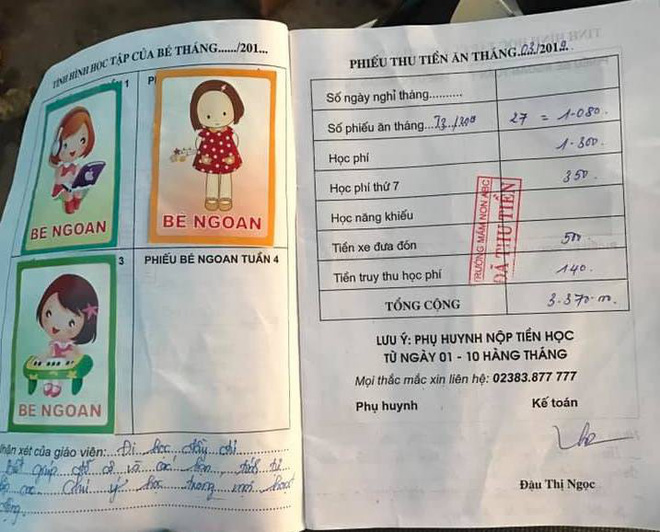 TÌNH HÌNH HỌC TẬP CỦA BÉ THÁNG....../201...
1
BÉ NGOAN
BÉ NGOAN
3
PHIẾU BÉ NGOAN TUẦN 4
BÉ NGOAN
Nhận xét của giáo viên: Đi học đầy chỉ
biết giúp đỡ cô và các bạn
Chú ý học trong mọi hoạt
động
PHIẾU THU TIỀN ĂN THÁNG 03/2019
Số ngày nghỉ tháng..........
Số phiếu ăn tháng 27 = 1.080.
Học phí 1.300.
Học phí thứ 7 350.
Học năng khiếu
Tiền xe đưa đón 500
Tiền truy thu học phí 140.
TỔNG CỘNG 3.370.
TRƯỜNG MẦM NON ABC
ĐÃ THU TIỀN
LƯU Ý: PHỤ HUYNH NỘP TIỀN HỌC
TỪ NGÀY 01 - 10 HÀNG THÁNG
Mọi thắc mắc xin liên hệ: 02383.877 777
Phụ huynh Kế toán
Đậu Thị Ngọc